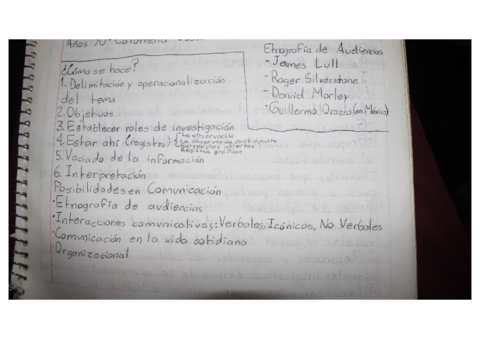 Años 70 Columbia
¿Cómo se hace?
1. Delimitación y operacionalización
del tema
2. Objetivos
3. Establecer roles de investigación
4. Estar ahí (registro)
La observación
La observación participante
Entrevistas abiertas
Registro gráfico
5. Vaciado de la información
6. Interpretación
Posibilidades en Comunicación
·Etnografía de audiencias
·Interacciones comunicativas: Verbales, Icónicas, No Verbales
·Comunicación en la vida cotidiana
·Organizacional
Etnografía de Audiencias
-James Lull
-Roger Silverstone
-David Morley
-Guillermo Orozco (en México)